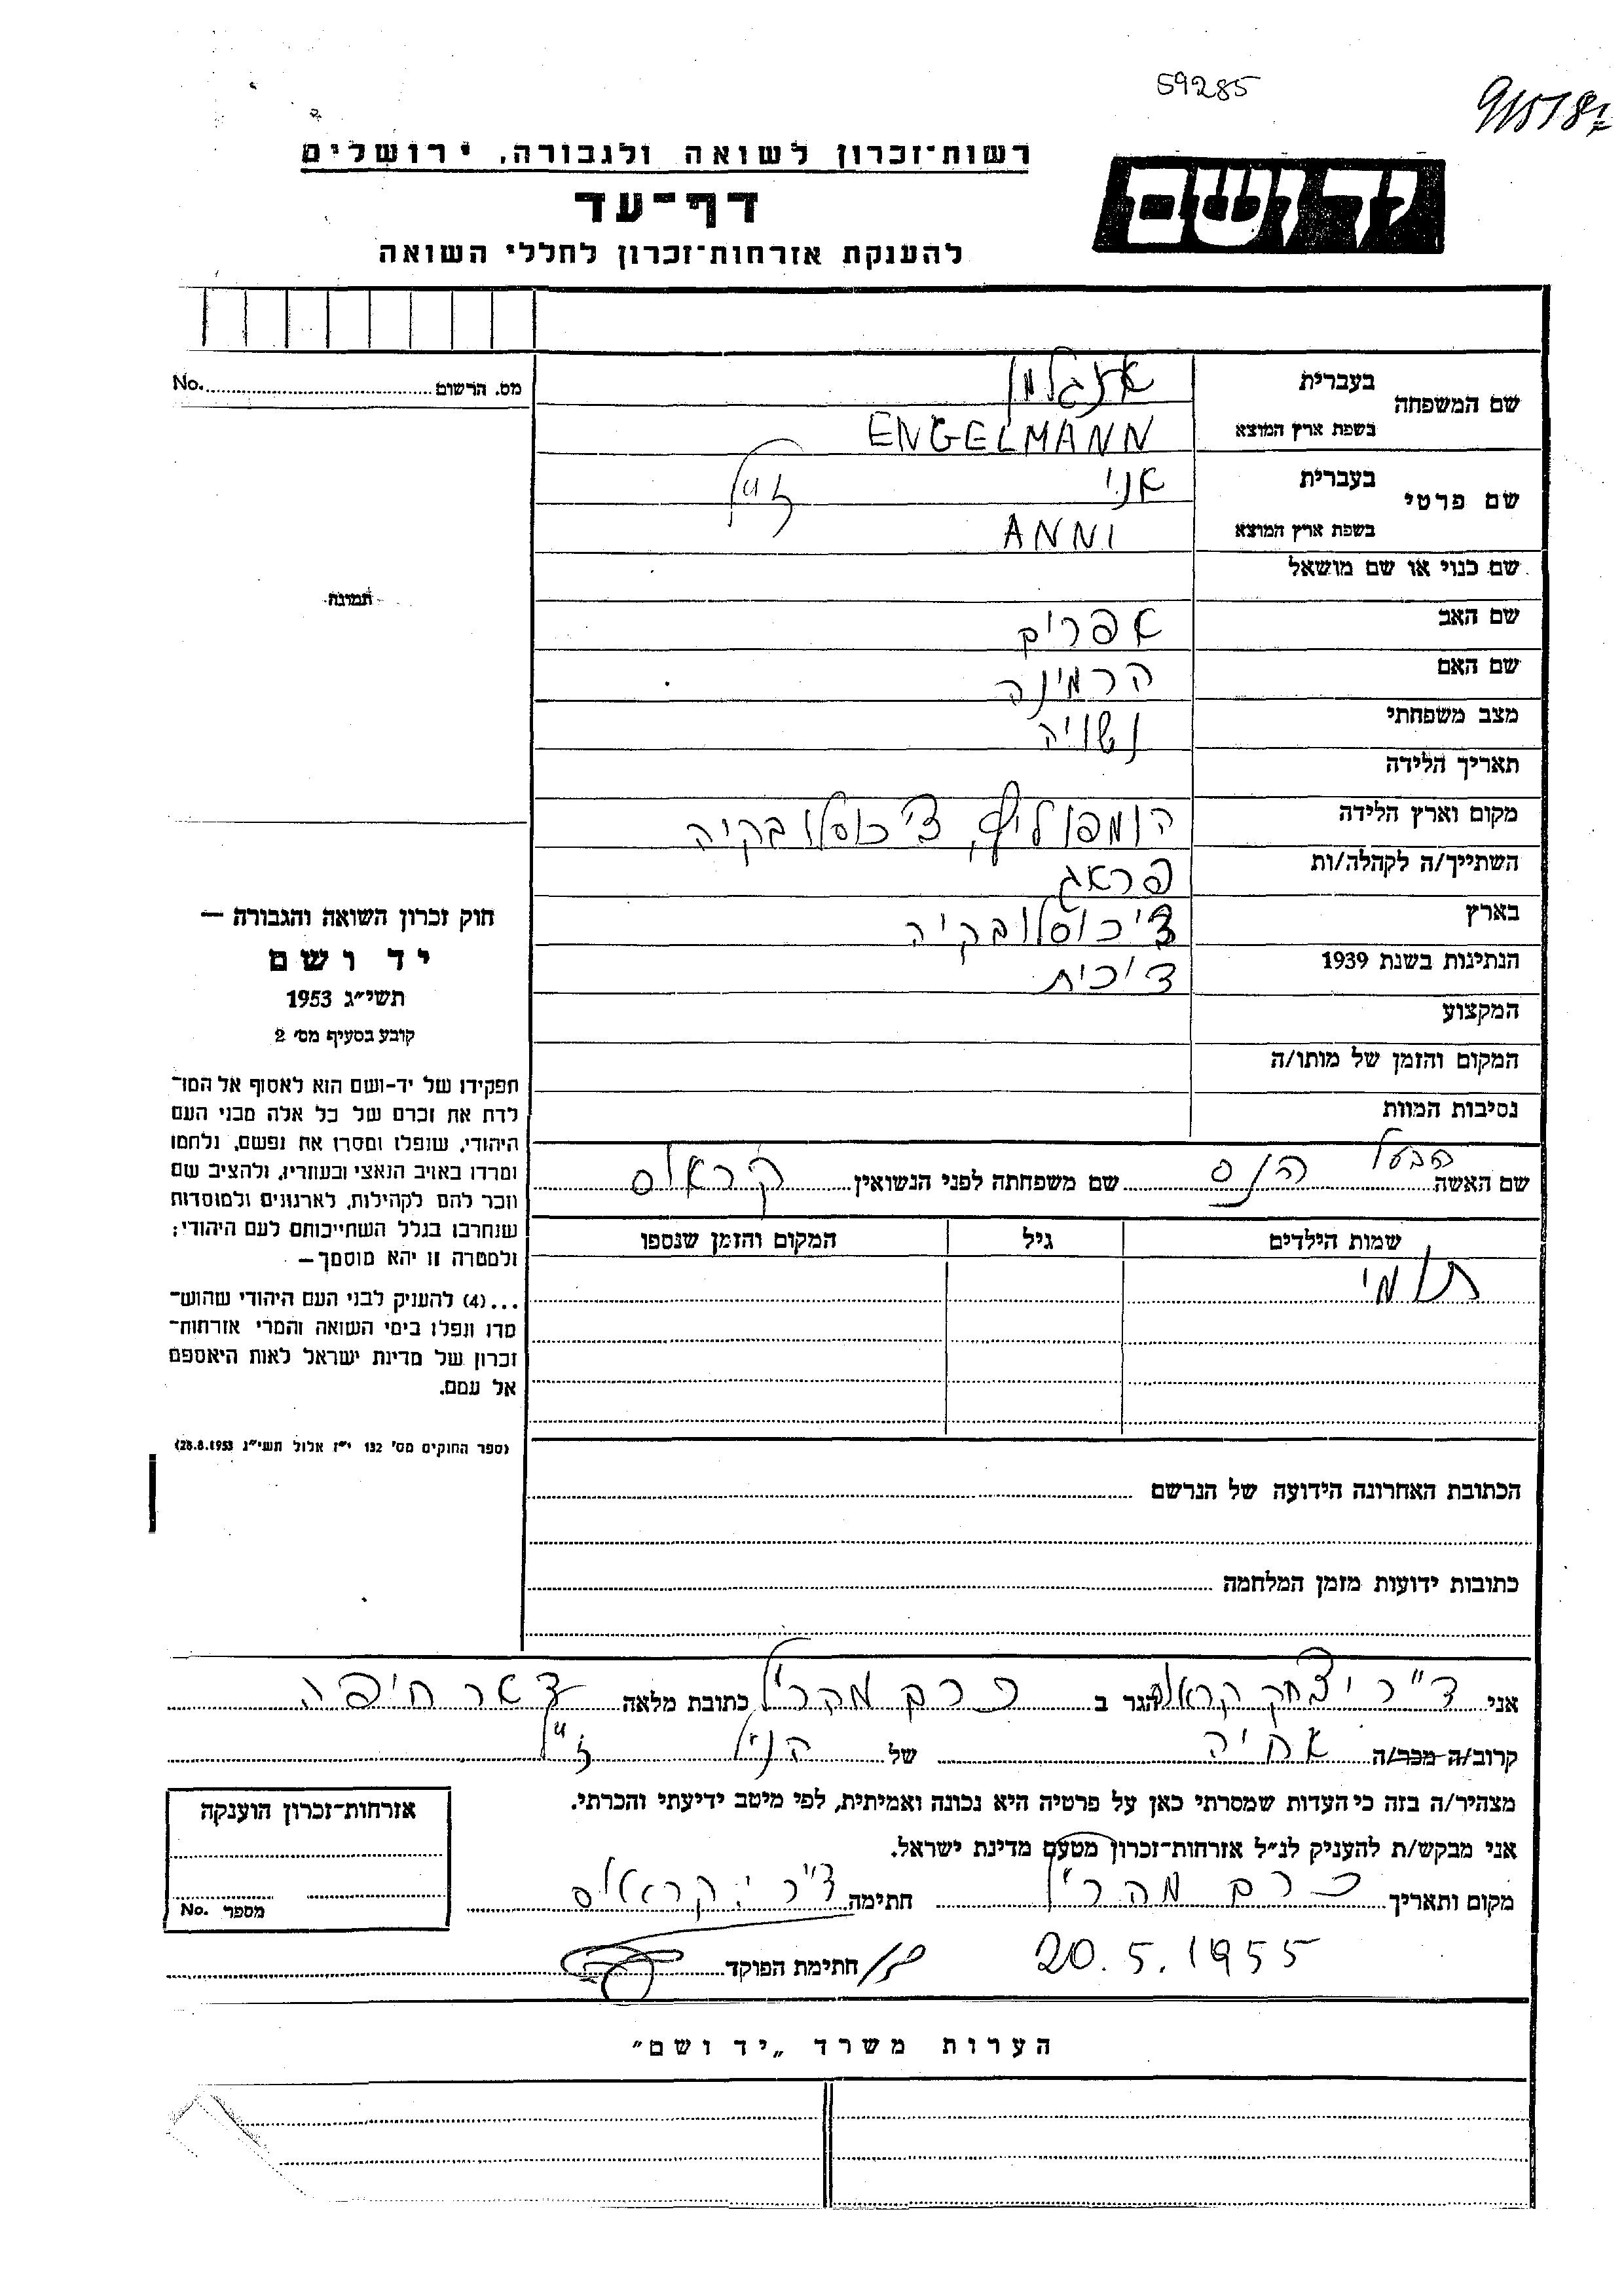 59285
רשות־זכרון לשואה ולגבורה, ירושלים
יד ושם
דף־עד
להענקת אזרחות־זכרון לחללי השואה
No. מס. הרשום
שם המשפחה בעברית אנגלמן
בשפת ארץ המוצא ENGELMANN
שם פרטי בעברית אני ז"ל
בשפת ארץ המוצא ANNI
שם כנוי או שם מושאל
תמונה
שם האב אפרים
שם האם הרמינה
מצב משפחתי נשויה
תאריך הלידה
מקום וארץ הלידה הומפוליץ, צ'כוסלובקיה
השתייך/ה לקהלה/ות פראג
בארץ צ'כוסלובקיה
הנתינות בשנת 1939 צ'כית
המקצוע
המקום והזמן של מותו/ה
נסיבות המוות
הבעל
שם האשה הנס שם משפחתה לפני הנשואין קראוס
שמות הילדים גיל המקום והזמן שנספו
תומי
חוק זכרון השואה והגבורה —
יד ושם
תשי״ג 1953
קובע בסעיף מס׳ 2
תפקידו של יד-ושם הוא לאסוף אל המו־
לדת את זכרם של כל אלה מבני העם
היהודי, שנפלו ומסרו את נפשם, נלחמו
ומרדו באויב הנאצי ובעוזריו, ולהציב שם
וזכר להם לקהילות, לארגונים ולמוסדות
שנחרבו בגלל השתייכותם לעם היהודי;
ולמטרה זו יהא מוסמך—
...(4) להעניק לבני העם היהודי שהוש־
מדו ונפלו בימי השואה והמרי אזרחות־
זכרון של מדינת ישראל לאות היאספם
אל עמם.
(ספר החוקים מס׳ 132 י״ז אלול תשי״ג 28.8.1953)
הכתובת האחרונה הידועה של הנרשם
כתובות ידועות מזמן המלחמה
אני ד"ר יצחק קראוס הגר ב כרם מהר"ל כתובת מלאה דאר חיפה
קרוב/ה מכר/ה אחיה של הנ"ל ז"ל
מצהיר/ה בזה כי העדות שמסרתי כאן על פרטיה היא נכונה ואמיתית, לפי מיטב ידיעתי והכרתי.
אני מבקש/ת להעניק לנ״ל אזרחות־זכרון מטעם מדינת ישראל.
מקום ותאריך כרם מהר"ל חתימה ד"ר י. קראוס
20.5.1955 חתימת הפוקד
אזרחות־זכרון הוענקה
No. מספר
הערות משרד „יד ושם״